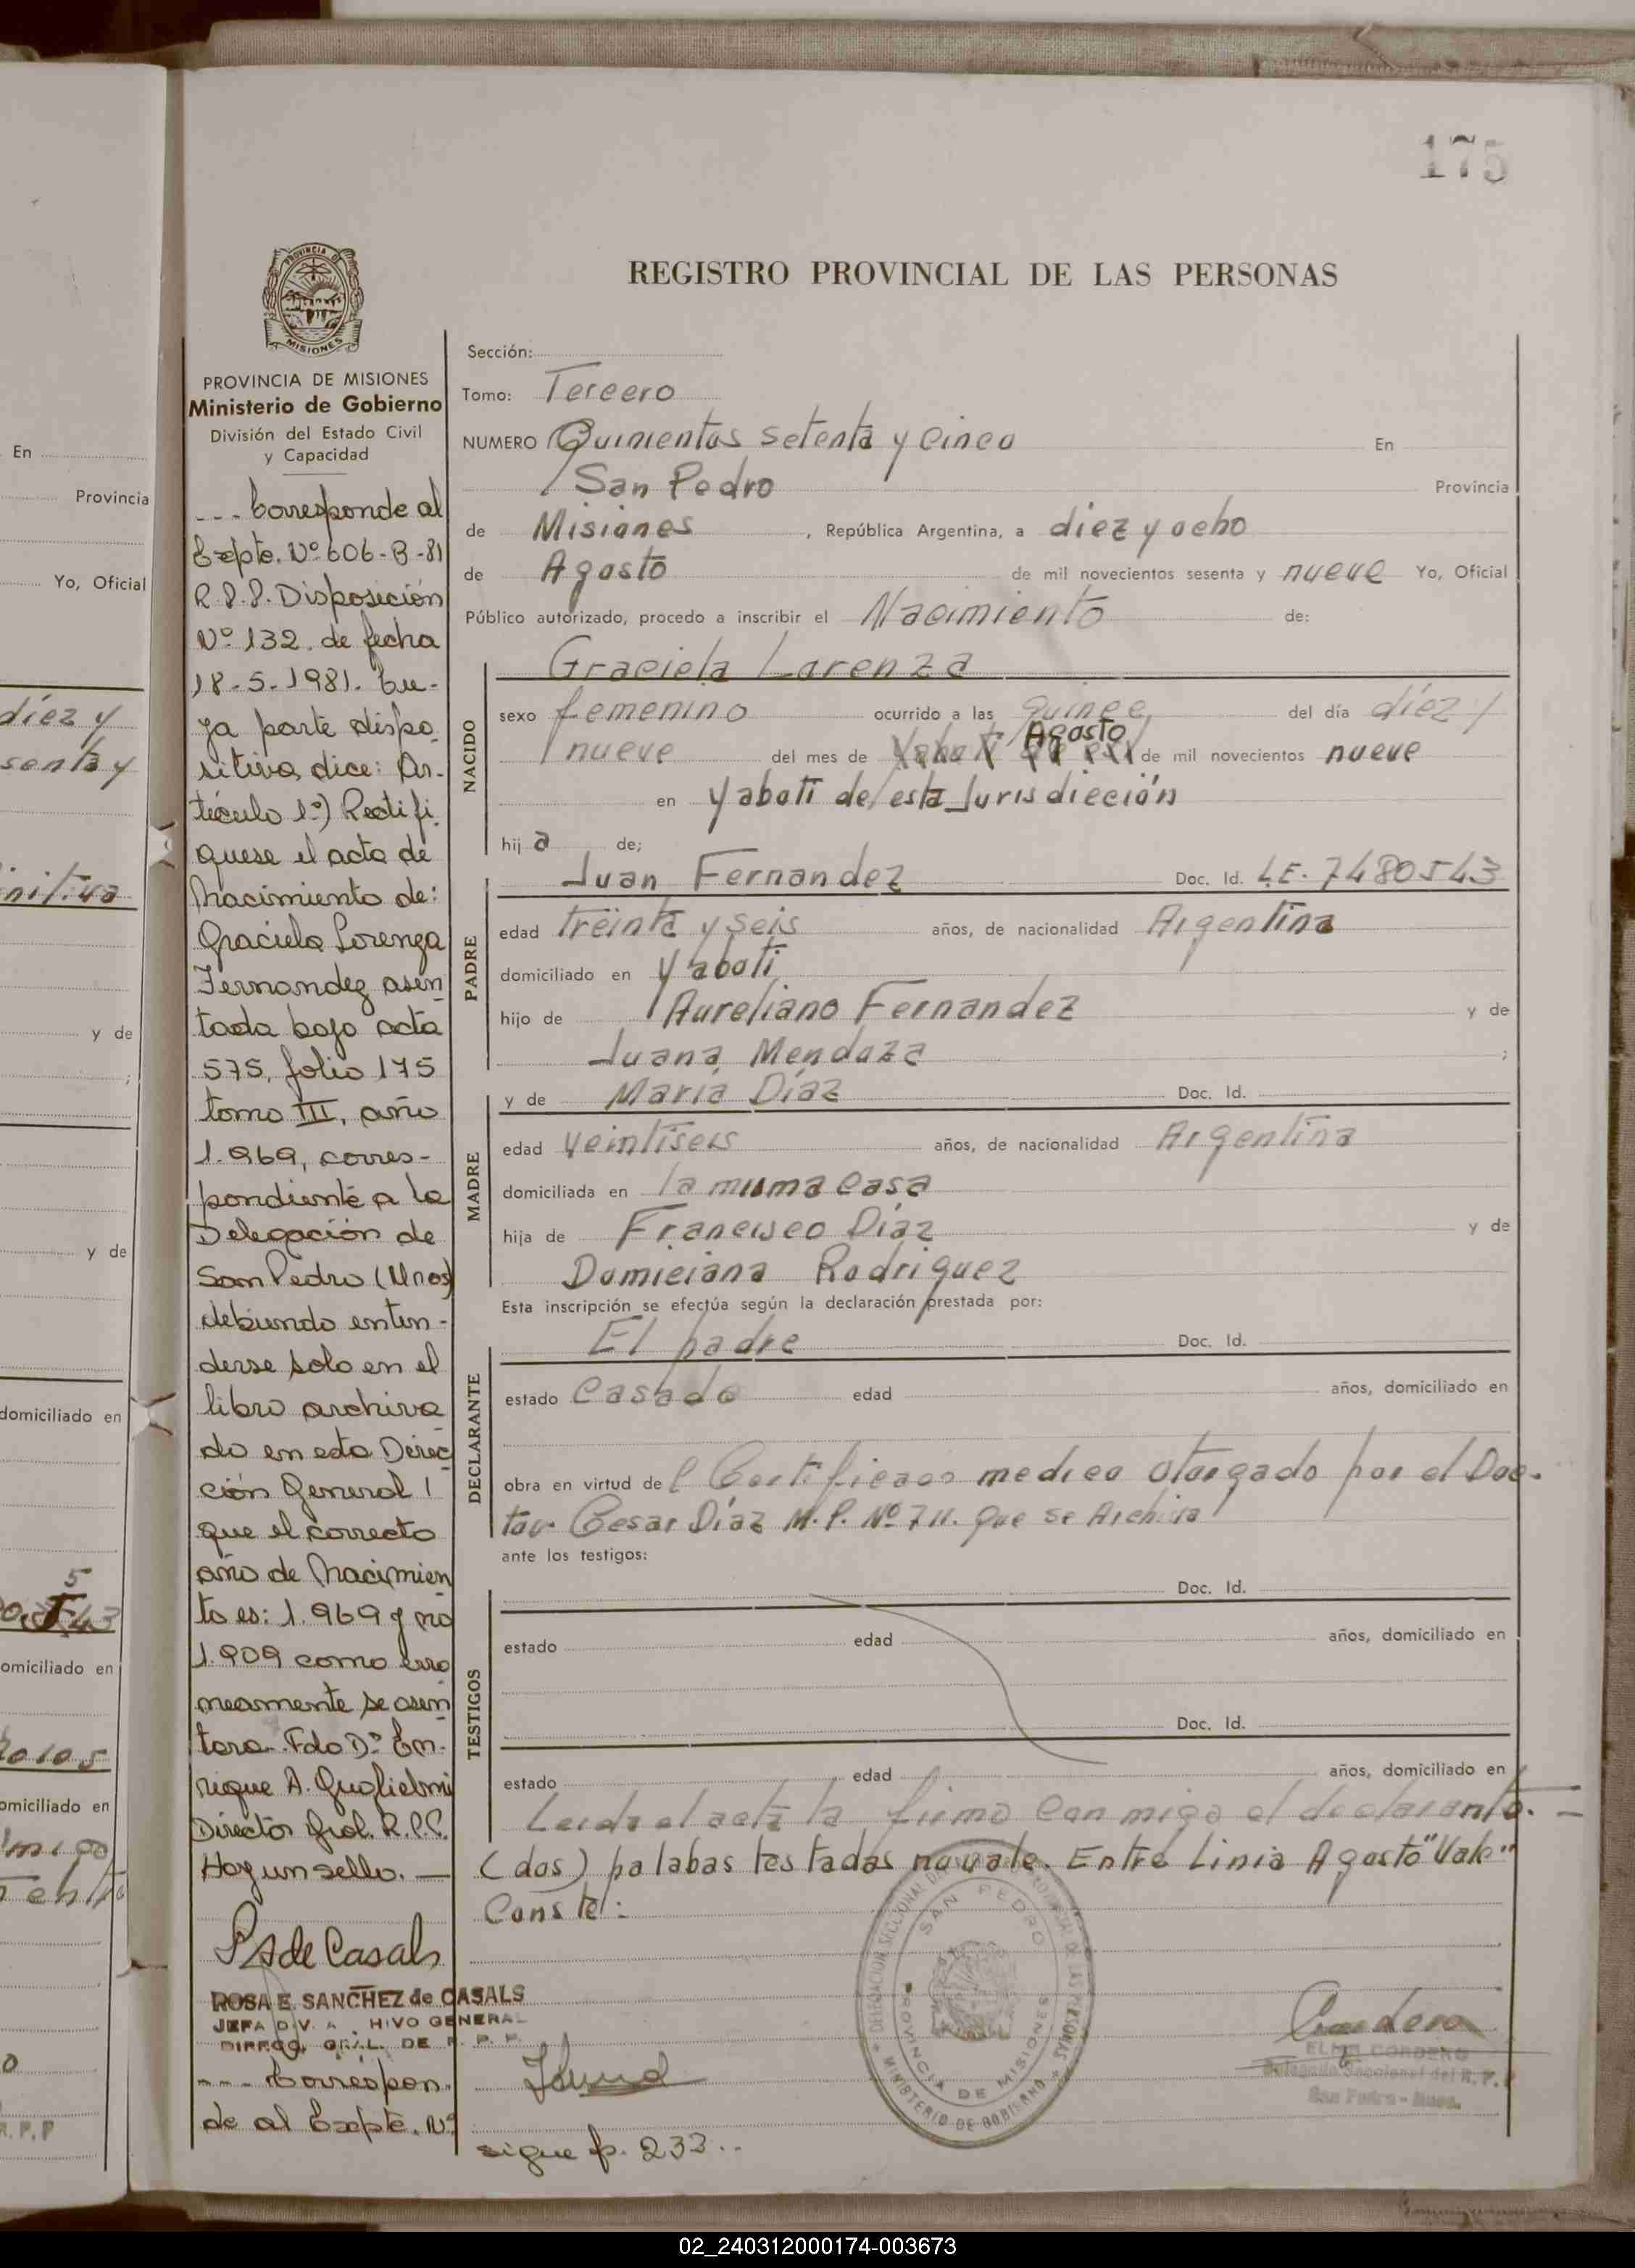 175
REGISTRO PROVINCIAL DE LAS PERSONAS
PROVINCIA DE MISIONES
Ministerio de Gobierno
División del Estado Civil
y Capacidad
--- Corresponde al
Expte. Nº 606-B-81
R.P.P. Disposición
Nº 132. de fecha
18-5-1981. Cu-
ya parte dispo-
sitiva dice: Ar-
tículo 1º) Rectifi-
quese el acta de
Nacimiento de:
Graciela Lorenza
Fernandez asen
tada bajo acta
575, folio 175
tomo III, año
1.969, corres-
pondiente a la
Delegación de
San Pedro (Mnes)
debiendo enten-
derse solo en el
libro archiva
do en esta Direc
ción General
que el correcto
año de Nacimien
to es: 1.969 y no
1.909 como erro
neamente se asen
tara. Fdo Dº En-
rique A. Guglielmi
Director Gral. R.P.P.
Hay un sello. —
ROSA E. SANCHEZ de CASALS
JEFA DIV. A HIVO GENERAL
DIRECC. GRAL. DE R. P. P.
--- Correspon-
de al Expte. Nº
Sección:
Tomo: Tercero
NUMERO Quinientos setenta y cinco En
San Pedro Provincia
de Misiones, República Argentina, a diez y ocho
de Agosto de mil novecientos sesenta y nueve Yo, Oficial
Público autorizado, procedo a inscribir el Nacimiento de:
NACIDO
Graciela Lorenza
sexo femenino ocurrido a las quince del día diez y
nueve del mes de Agosto de mil novecientos nueve
en Yaboti de esta Jurisdicción
hija de;
PADRE
Juan Fernandez Doc. Id. L.E. 7480543
edad treinta y seis años, de nacionalidad Argentina
domiciliado en Yaboti
hijo de Aureliano Fernandez y de
Juana Mendoza ;
MADRE
y de María Díaz Doc. Id.
edad veintiseis años, de nacionalidad Argentina
domiciliada en la misma casa
hija de Francisco Díaz y de
Domiciana Rodriguez
Esta inscripción se efectúa según la declaración prestada por:
DECLARANTE
El padre Doc. Id.
estado Casado edad años, domiciliado en
obra en virtud del Certificado medico otorgado por el Doc-
tor Cesar Díaz M.P. Nº 711. que se Archiva
ante los testigos:
TESTIGOS
Doc. Id.
estado edad años, domiciliado en
Doc. Id.
estado edad años, domiciliado en
Leida el acta la firma con migo el declarante. —
(dos) palabas testadas no vale. Entre Linia Agosto "Vale"
Conste:
SAN PEDRO
PROVINCIA DE MISIONES
MINISTERIO DE GOBIERNO
CORDERO
Delegado Seccional del R. P. P.
San Pedro - Mnes.
sigue f. 233..
En
Provincia
Yo, Oficial
diez y
senta y
nitiva
y de
;
y de
domiciliado en
omiciliado en
omiciliado en
migo
R. P. P
02_240312000174-003673